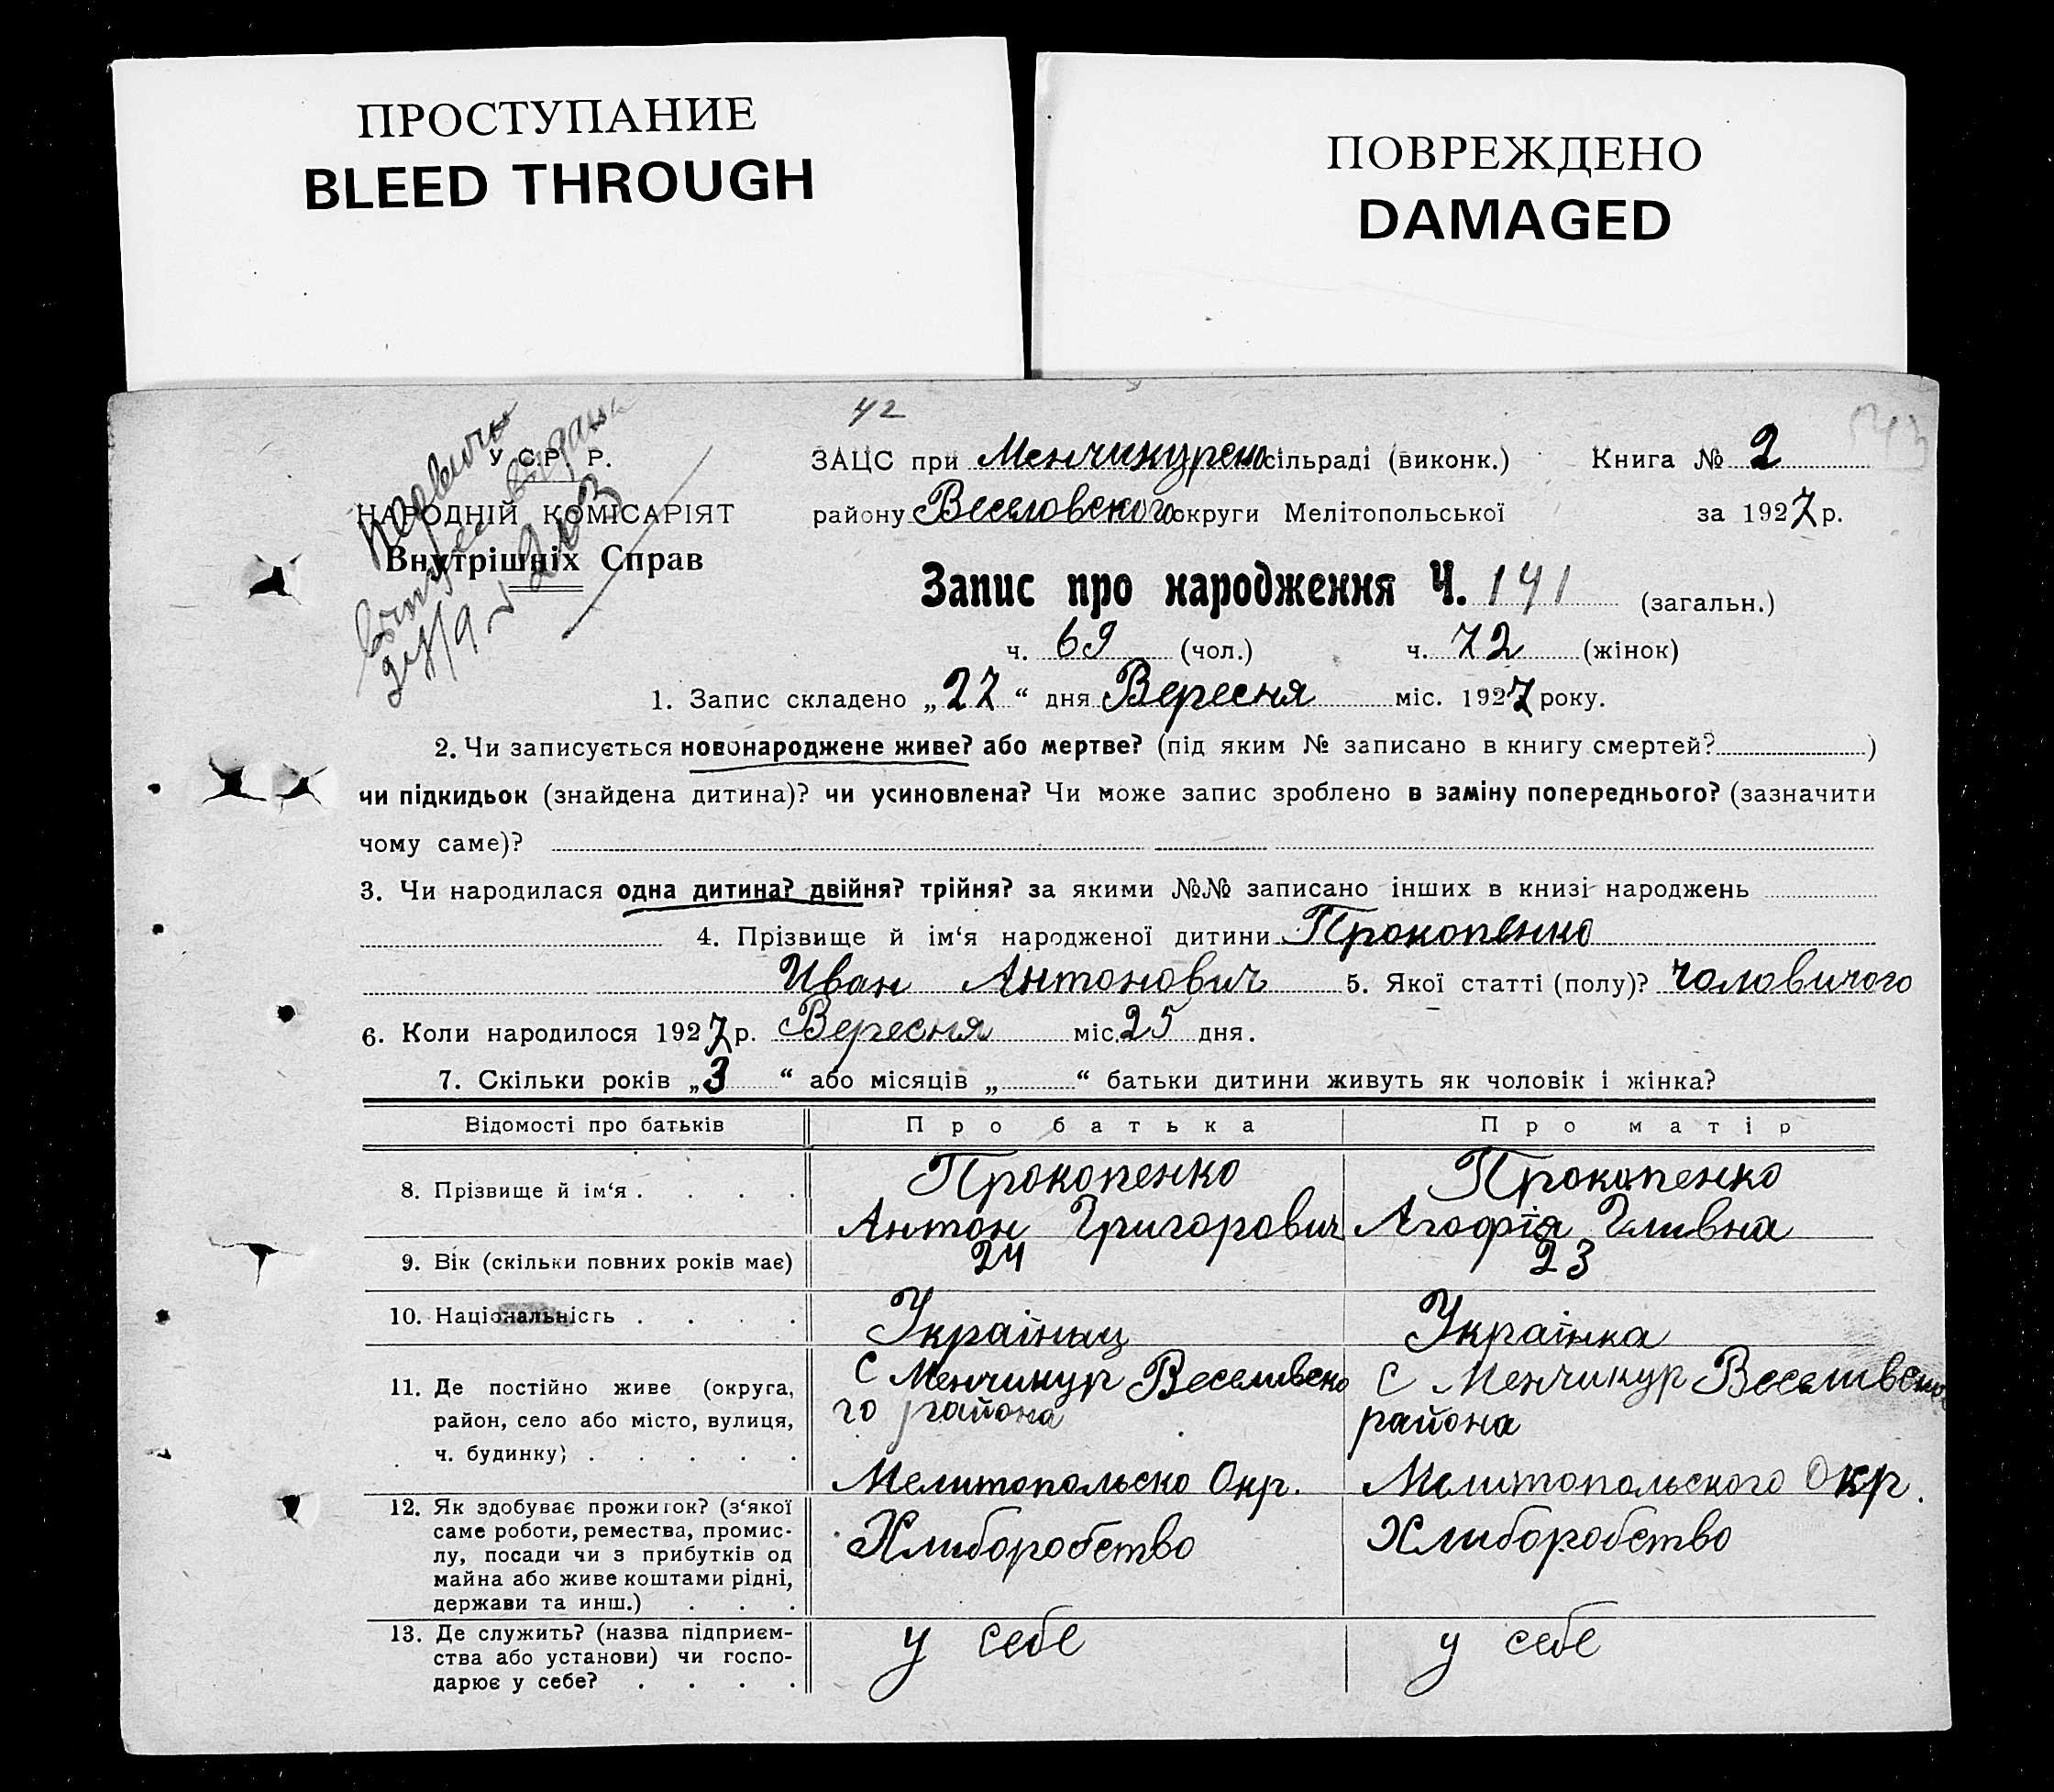 ПРОСТУПАНИЕ
BLEED THROUGH
ПОВРЕЖДЕНО
DAMAGED
42
У.С.Р. Р.
НАРОДНІЙ КОМІСАРІЯТ
Внутрішніх Справ
ЗАЦС при Менчикурско сільраді (виконк.) Книга № 2
району Веселовского округи Мелітопольської за 1927 р.
Запис про народження Ч. 141 (загальн.)
ч. 69 (чол.) ч. 72 (жінок)
1. Запис складено „27“ дня Вересня міс. 1927 року.
2. Чи записується новонароджене живе? або мертве? (під яким № записано в книгу смертей? )
чи підкидьок (знайдена дитина)? чи усиновлена? Чи може запис зроблено в заміну попереднього? (зазначити
чому саме)?
3. Чи народилася одна дитина? двійня? трійня? за якими №№ записано інших в книзі народжень
4. Прізвище й ім‘я народженої дитини Прокопенко
Иван Антонович 5. Якої статті (полу)? чоловичого
6. Коли народилося 1927 р. Вересня міс. 25 дня.
7. Скільки років „3“ або місяців „ “ батьки дитини живуть як чоловік і жінка?
Відомості про батьків Про батька Про матір
8. Прізвище й ім‘я . . . . Прокопенко Прокопенко
Антон Григорович Агофія Гливна
9. Вік (скільки повних років має) 24 23
10. Національність . . . . Українец Українка
11. Де постійно живе (округа, С Менчикур Веселивско С Менчикур Веселивско
район, село або місто, вулиця, го района района
ч. будинку) . . . . .
Мелитопольско Окр. Мелитопольского Окр.
12. Як здобуває прожиток? (з‘якої
саме роботи, ремества, промис- Хлиборобство Хлиборобство
лу, посади чи з прибутків од
майна або живе коштами рідні,
держави та инш.) . . .
13. Де служить? (назва підприєм- у себе у себе
ства або установи) чи госпо-
дарює у себе? . . . .